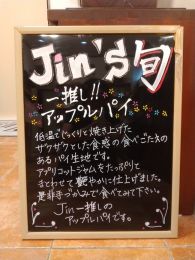 Jin's旬
一推し!!
アップルパイ
低温でじっくりと焼き上げた
ザクザクとした食感の食べごたえの
あるパイ生地です。
アプリコットジャムをたっぷりと
まとわせて艶やかに仕上げました。
是非手づかみで食べてみて下さい。
Jin一推しの
アップルパイです。